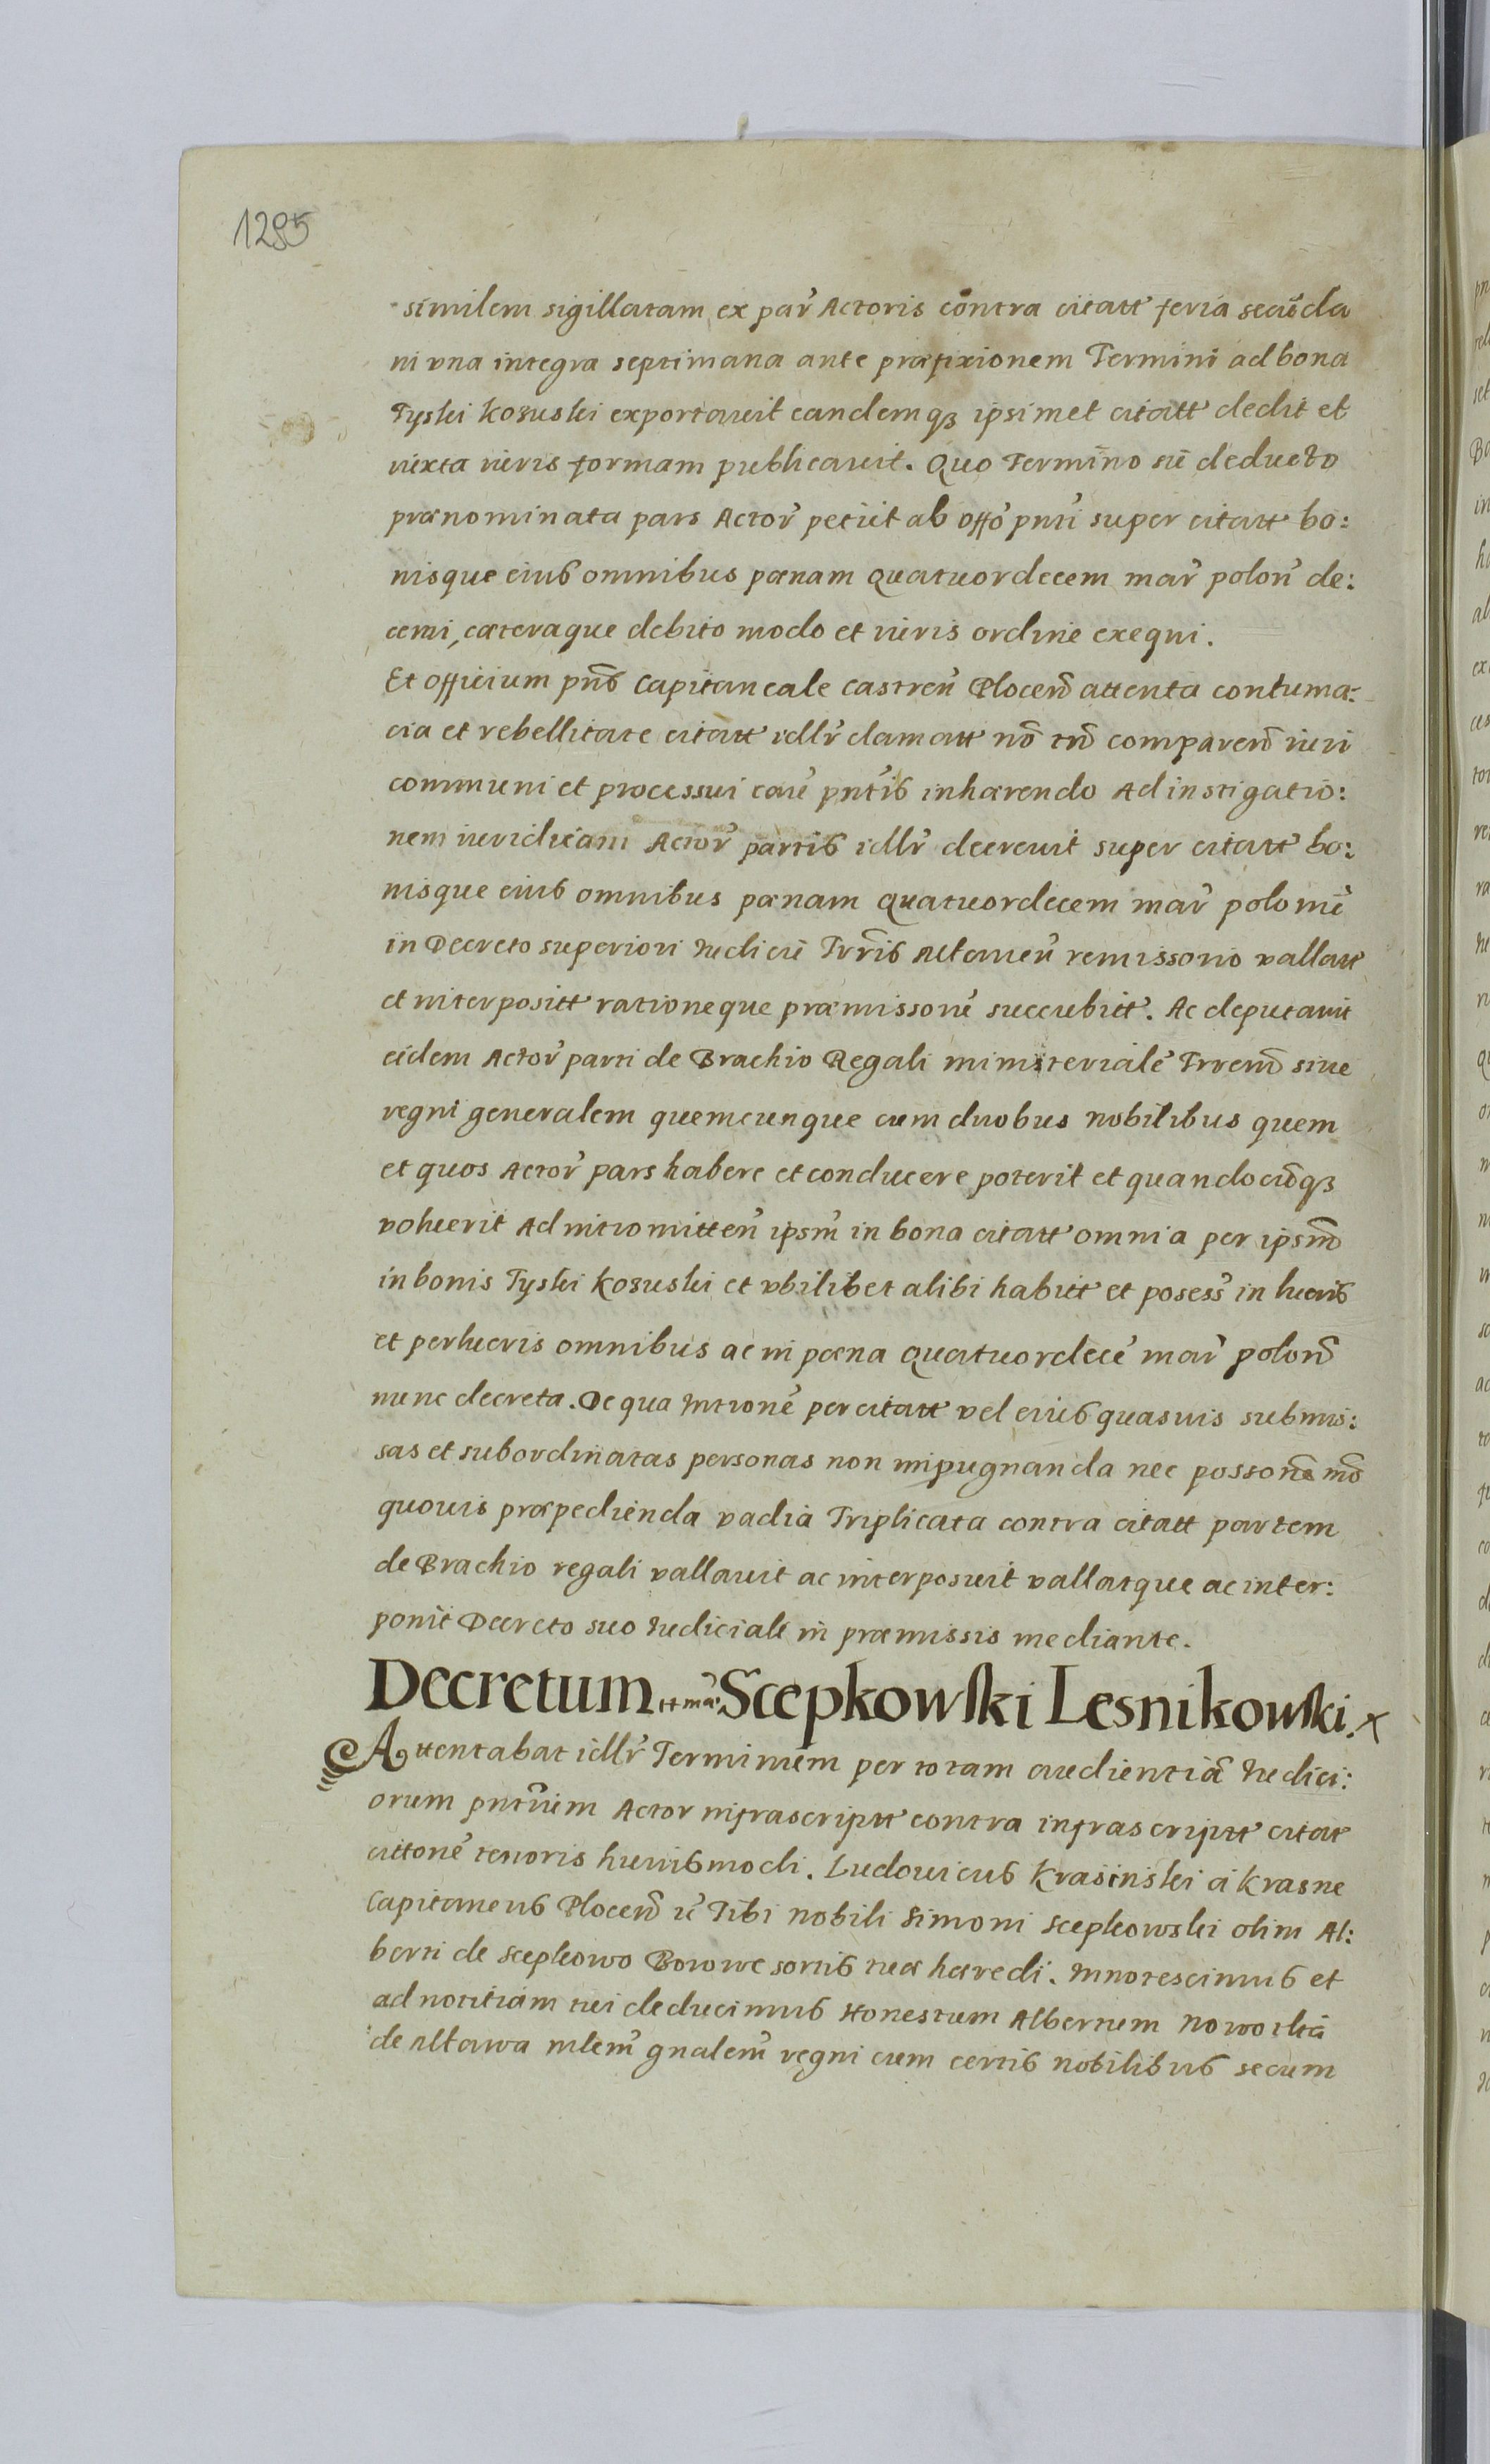 1295
similem sigillatam ex par̃ Actoris contra citatt feria secũda
in vna integra septimana ante præfixionem Termini ad bona
Tyski Kozuski exportauit eandemqꝫ ipsimet citatt dedit et
iuxta iuris formam publicauit. Quo Termino sic deducto
prænominata pars Actor̃ petiit ab offõ pnti super citatt bo:
nisque eius omnibus pœnam quatuordecem mar̃ polon̄ de:
cerni, cæteraque debito modo et iuris ordine exequi.
Et officium pñs Capitaneale Castreñ Plocen̄ attenta contuma:
cia et rebellitate citatt idlr̃ clamatt nō tn̄ comparen̄ iuri
communi et processui cauẽ pntis inhærendo Ad instigatio:
nem iuridicam Actor̃ partis idlr̃ decreuit super citatt bo:
nisque eius omnibus pœnam quatuordecem mar̃ polonic̃
in Decreto superiori Iudicii Trr̃is Mlauieñ remissorio vallatt
et interpositt rationeque præmissorũ succubitt. Ac deputauit
eidem Actor̃ parti de Brachio Regali ministerialẽ Trren̄ siue
regni generalem quemcunque cum duobus nobilibus quem
et quos Actor̃ pars habere et conducere poterit et quandocũqꝫ
voluerit Ad intromitteñ ipsm̃ in bona citatt omnia per ipsm̄
in bonis Tyski Kozuski et vbilibet alibi habitt et posess̃ in lucris
et perlucris omnibus ac in pœna quatuordecẽ mar̃ polon̄
nunc decreta. De qua Intronẽ per citatt vel eius quasuis submis:
sas et subordinatas personas non impugnanda nec possonẽ mō
quouis præpedienda vadia Triplicata contra citatt partem
de Brachio regali vallauit ac interposuit vallatque ac inter:
ponit Decreto suo Iudiciali in præmissis mediante.
Decretum Scepkowski Lesnikowski.
Attentabat idlr̃ Terminum per totam audientiã Iudici:
orum pntium Actor infrascriptt contra infrascriptt citat
cittonẽ tenoris huiusmodi. Ludouicus Krasinski a Krasne
Capitaneus Plocen̄ Tibi nobili Simoni Scepkowski olim Al:
berti de Scepkowo Borowe sortis tuæ hæredi. Innotescimus et
ad notitiam tui deducimus Honestum Albertum
de Mlawa gnalem̃ regni cum certis nobilibus secum